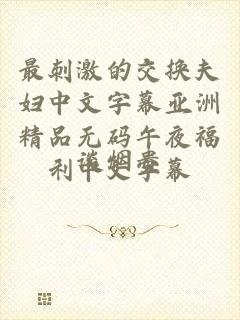 最刺激的交换夫
妇中文字幕亚洲
精品无码午夜福
利中文字幕